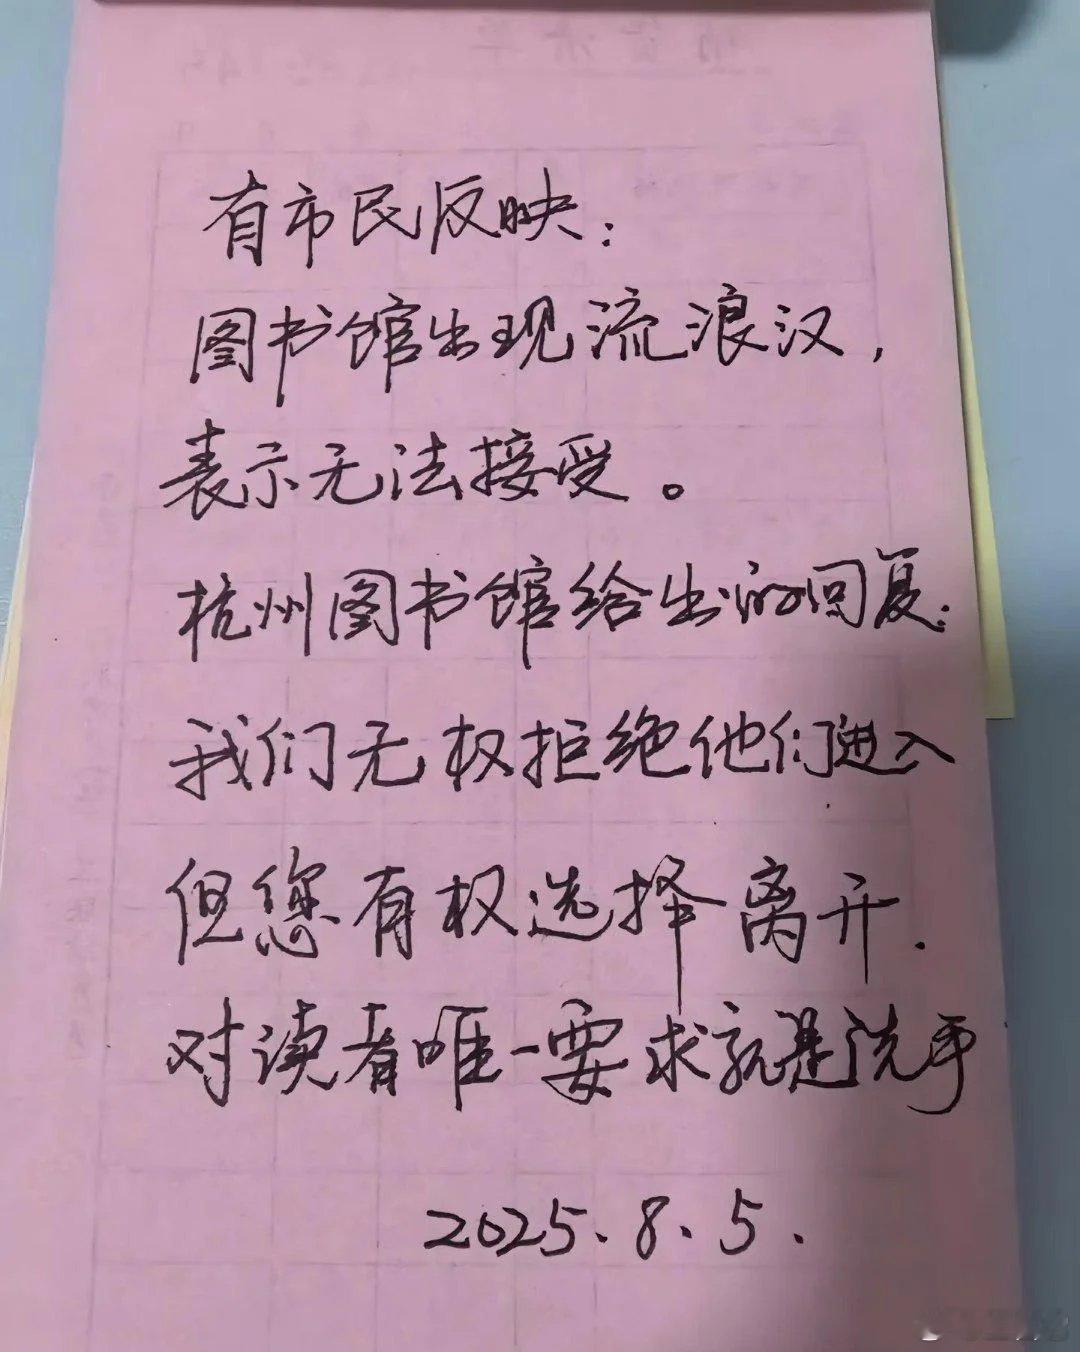 有市民反映：
图书馆出现流浪汉，
表示无法接受。
杭州图书馆给出的回复：
我们无权拒绝他们进入
但您有权选择离开.
对读者唯一要求就是洗手
2025.8.5.